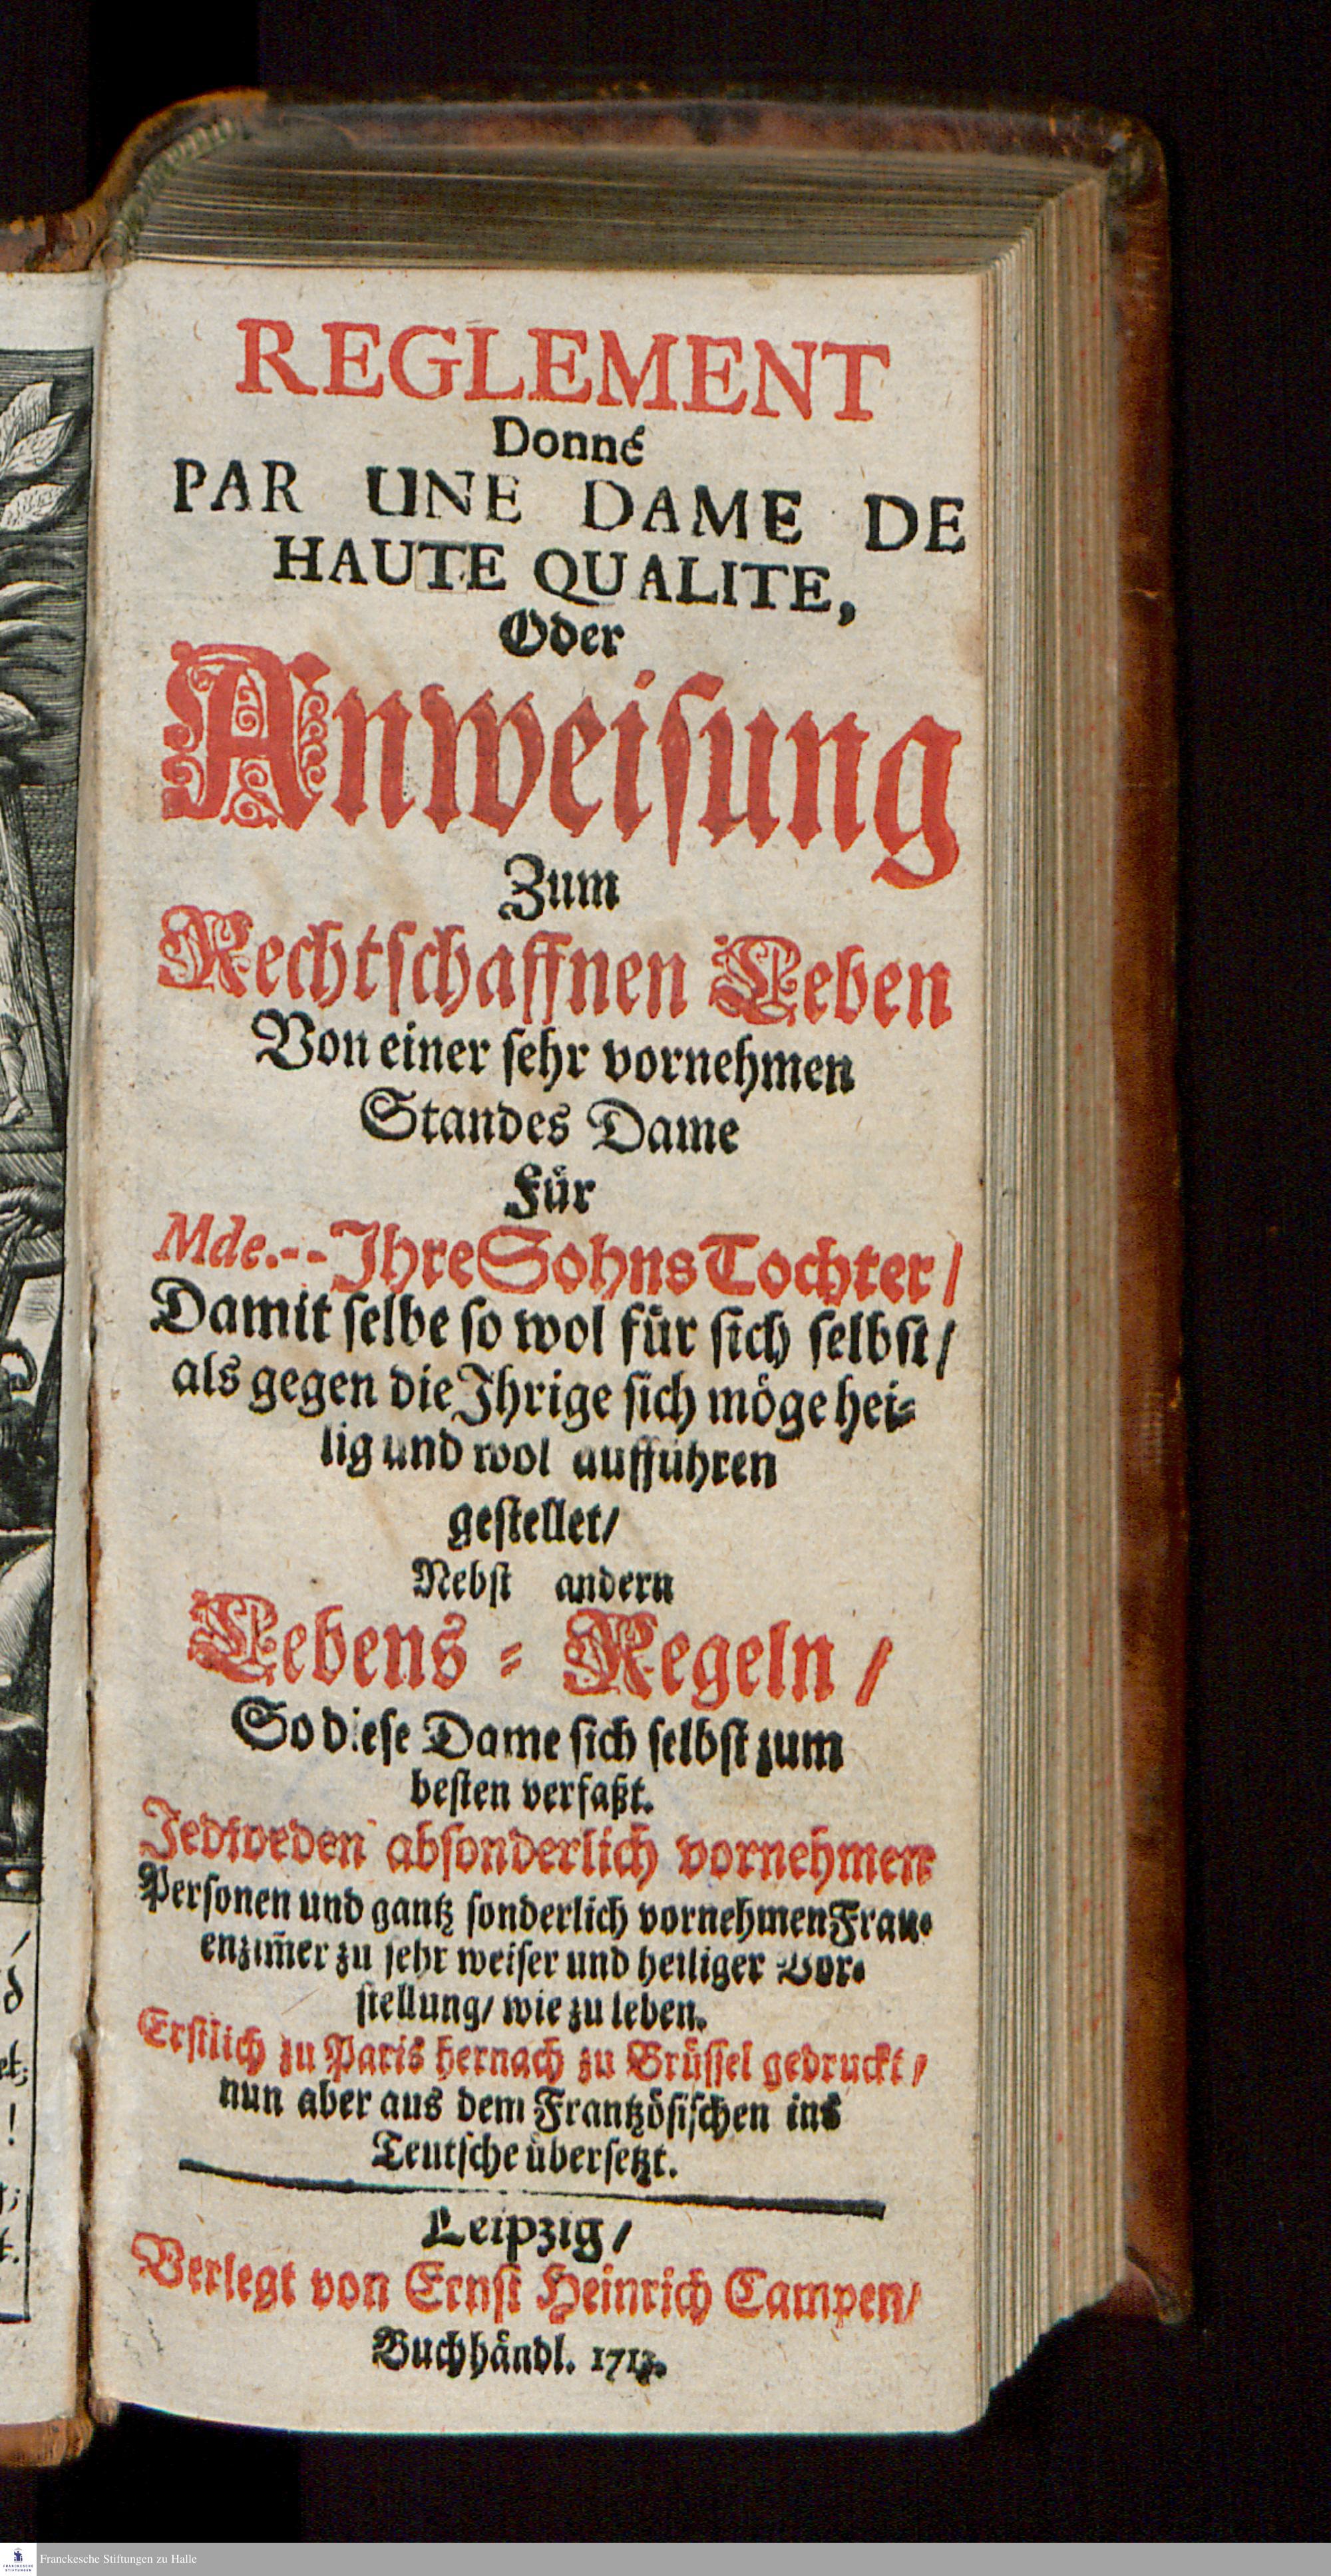 REGLEMENT
Donné
PAR UNE DAME DE
HAUTE QUALITE,
Oder
Anweisung
Zum
Rechtschaffnen Leben
Von einer sehr vornehmen
Standes Dame
Für
Mde.--Ihre Sohns Tochter/
Damit selbe so wol für sich selbst/
als gegen die Ihrige sich möge hei-
lig und wol aufführen
gestellet/
Nebst andern
Lebens-Regeln/
So diese Dame sich selbst zum
besten verfaßt.
Jedweden absonderlich vornehmen
Personen und gantz sonderlich vornehmen Frau-
enzim̃er zu sehr weiser und heiliger Vor-
stellung/ wie zu leben.
Erstlich zu Paris hernach zu Brüssel gedruckt/
nun aber aus dem Frantzösischen ins
Teutsche übersetzt.
Leipzig/
Verlegt von Ernst Heinrich Campen/
Buchhändl.
Franckesche Stiftungen zu Halle